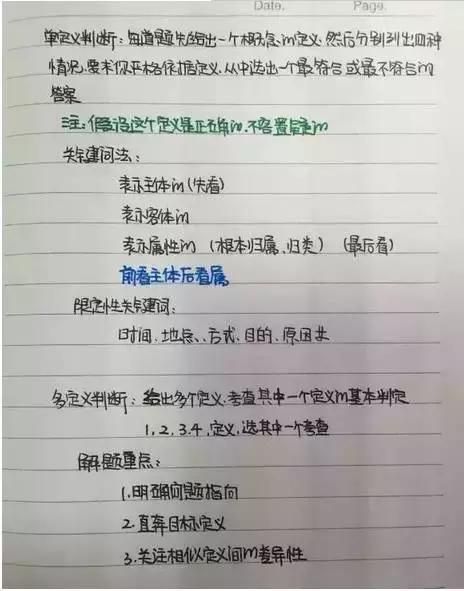 Date.
Page.
单定义判断：每道题先给出一个概念的定义，然后分别列出四种
情况，要求你严格依据定义，从中选出一个最符合或最不符合的
答案
注：假设这个定义是正确的，不容置疑的
关键词法：
表示主体的（先看）
表示客体的
表示属性的（根本归属、归类）（最后看）
前看主体后看属
限定性关键词：
时间、地点、方式、目的、原因共
多定义判断：给出多个定义，考查其中一个定义的基本判定
1，2，3.4，定义，选其中一个考查
解题重点：
1.明确问题指向
2.直奔目标定义
3.关注相似定义间的差异性